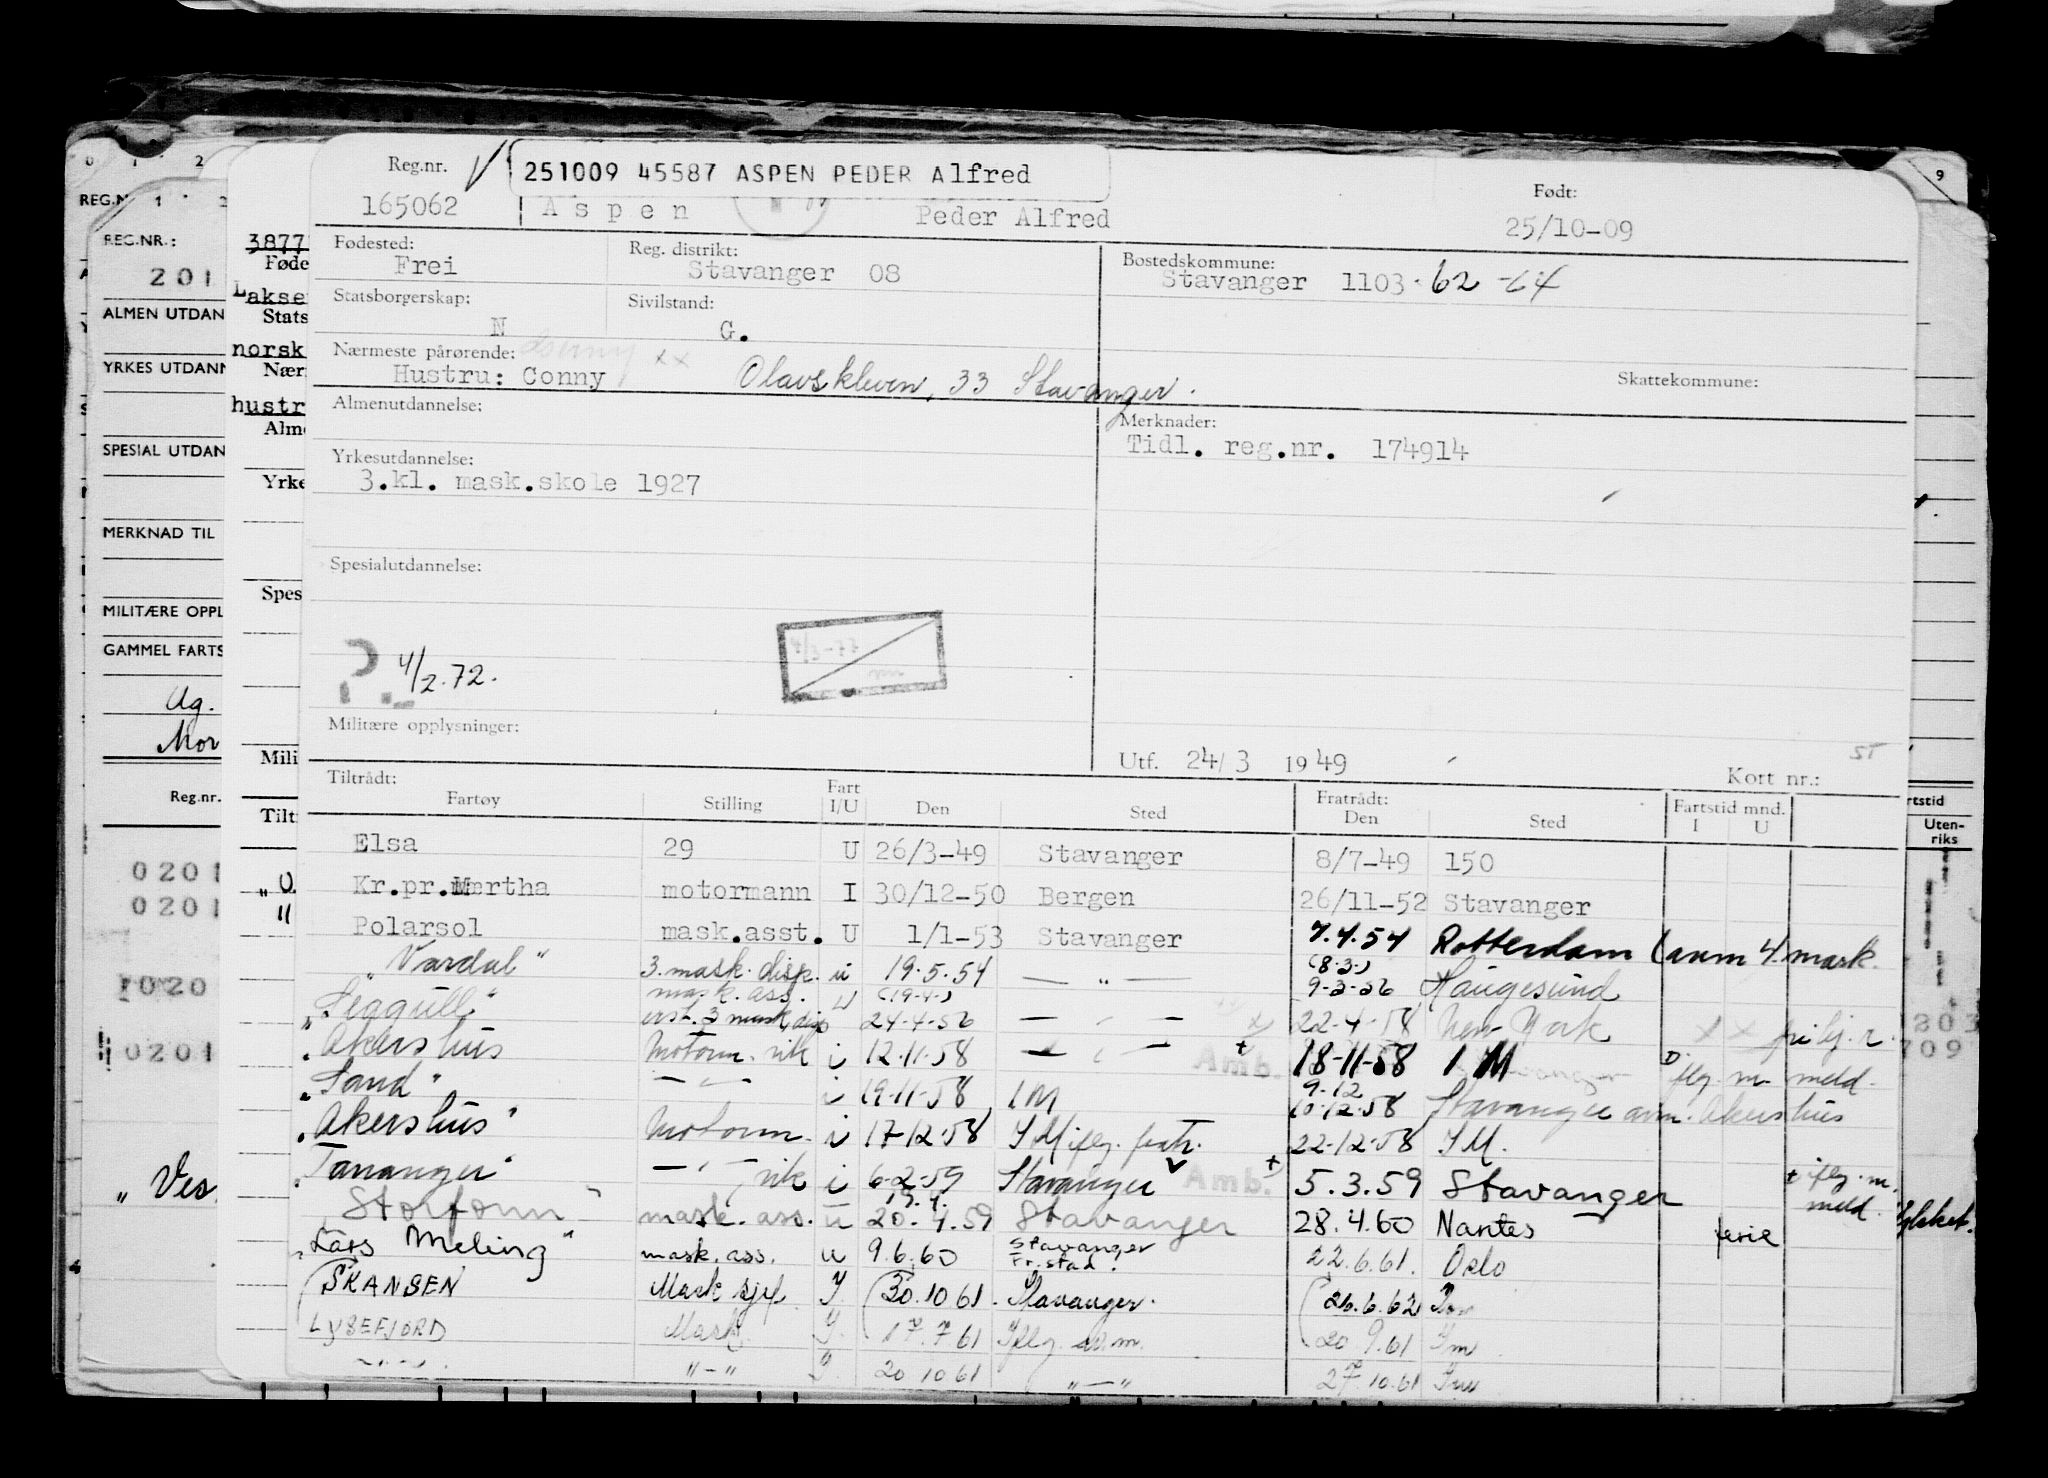 Reg.nr. 251009 45587 ASPEN PEDER Alfred Født:
165062 Aspen Peder Alfred 25/10-09
Fødested: Reg. distrikt: Bostedskommune:
Frei Stavanger 08 Stavanger 1103. 62 -64
Statsborgerskap: Sivilstand:
N G.
Nærmeste pårørende: xx Skattekommune:
Hustru: Conny Olavskleven, 33 Stavanger.
Almenutdannelse: Merknader:
Tidl. reg.nr. 174914
Yrkesutdannelse:
3.kl. mask.skole 1927
Spesialutdannelse:
4/3-77
?. 4/2.72.
Militære opplysninger:
Utf. 24/3 1949 Kort nr.: ST
Tiltrådt: Fart Fratrådt: Fartstid mnd.
Fartøy Stilling I/U Den Sted Den Sted I U
Elsa 29 U 26/3-49 Stavanger 8/7-49 150
Kr.pr. Mærtha motormann I 30/12-50 Bergen 26/11-52 Stavanger
Polarsol mask.asst. U 1/1-53 Stavanger 7.4.54 Rotterdam (avm 4. mask.
"Vardal" 3. mask. disp. u 19.5.54 — " — (8.3.) 9-3-56 Haugesund
"Seagull" mask. ass. u (19-4-) 24-4-56 — " — 22-4-58 New York xx fri bj. r.
"Akershus motorm. vik i 12-11-58 — " — Amb. + 18-11-58 IM flg. m meld.
"Sand" — " — i 19-11-58 IM 9-12 10-12-58 Stavanger avm. Akershus
"Akershus" Motorm. i 17-12-58 IM iflg. fratr. 22-12-58 IM.
"Tananger" — " — vik i 6-2-59 Stavanger Amb. + 5.3.59 Stavanger + iflg. m. meld.
"Storfonn" mask. ass. u 19.4. 20.4.59 Stavanger 28.4.60 Nantes ferie
"Lars Meling" mask. ass. u 9.6.60 Stavanger Fr.stad. 22.6.61. Oslo
SKANSEN Mask sjef I. 30.10 61. Stavanger. 26.6.62
LYSEFJORD Mask. I. 17.7 61 Iflg. avm. 20 9.61 Im
" — " " — " I. 20 10 61 " — " 27.10.61 Im
0 1 2
REG.N 1 2
REG.NR.:
201
ALMEN UTDAN
YRKES UTDANN
SPESIAL UTDAN
MERKNAD TIL
MILITÆRE OPPL
GAMMEL FARTS
Ug.
Mor
Reg.nr.
0201
0201
1020
0201
"Ves
3877
Føde
Lakse
Stats
norsk
Nær
hustr
Alme
Yrke
Spes
Mili
Tilt
" U.
"
9
rtstid
Uten-
riks
203
709